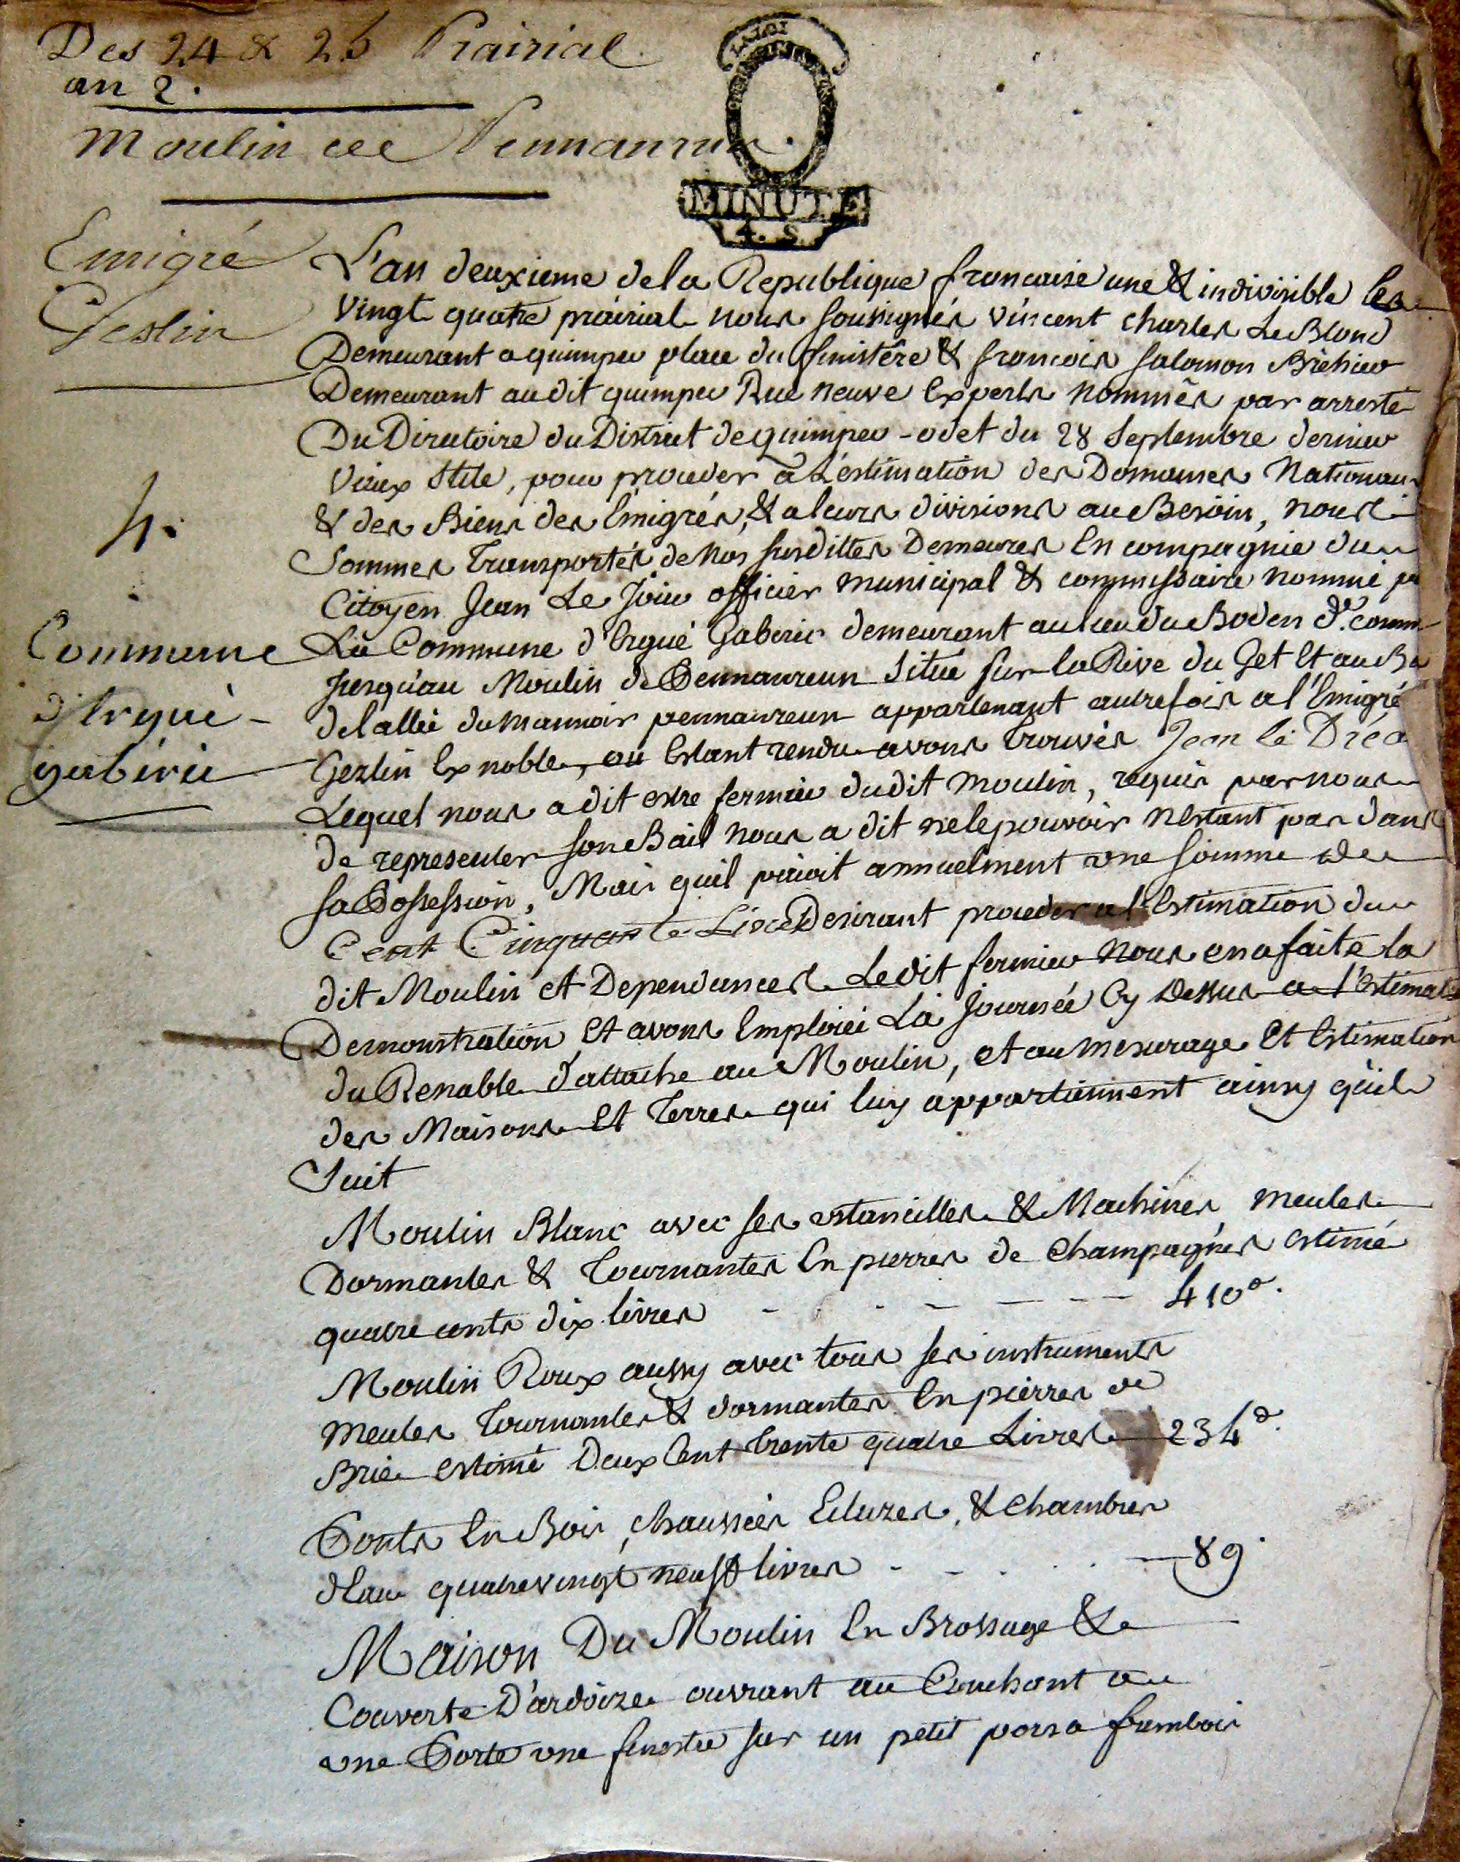 Des 24 & 25 Prairial
an 2.
LA LOI
Moulin de Pennanrun.
MINUTE
4. S.
Emigré
Geslin
4.
Commune
d'Ergué-
gabéric
L'an deuxieme de la Republique francaise une & indivisible le
vingt quatre prairial nous soussignés vincent charles Le Blond
Demeurant a quimper place du finistére & francois salomon Bréhier
Demeurant audit quimper Rue neuve Experts nommés par arresté
Du Directoire du District de quimper-odet du 28 Septembre dernier
vieux stile, pour proceder a L'estimation des Domaines Nationaux
& des Biens des Emigrés, & a leurs divisions au Besoin, nous
Sommes Transportés de Nos susdittes Demeures En compagnie du
Citoyen Jean Le Jour officier municipal & commissaire nommé par
La Commune d'Ergué Gaberic demeurant au lieu du Boden dte. comm
Jusqu'au Moulin de Pennanreun Situé sur la Rive du Jet Et au Ba
de l'allée du mannoir pennanreun appartenant autrefois a l'Emigré
Gezlin Ex noble, ou Estant rendu avons Trouvés Jean le Dréa
Lequel nous a dit estre fermier dudit Moulin, requis par nous
de representer son Bail nous a dit ne le pouvoir N'estant pas dans
sa Possession, Mais quil paioit annuelment une somme de
Cent Cinquante Livres Desirant proceder a l'Estimation du
dit Moulin et Dependances Ledit fermier nous en a faite la
Demonstration Et avons Emploiéi La Journée Cy Dessus a l'Estimati
du Renable d'attache au Moulin, et au mesurage Et Estimation
des Maisons Et Terres qui luy appartiennent ainsy qu'il
Suit
Moulin Blanc avec ses estancilles & Machines meules
Dormantes & Tournantes En pierres de Champagnes estimé
quatre cents dix livres - - - - - 410.
Moulin Roux aussy avec tous ses instruments
meules Tournantes & dormantes En pierres de
Brie estimé Deux Cent Trente quatre Livres 234.
Ponts En Bois, Chaussées Ecluzes, & Chambres
d'Eau quatrevingt neuf livres - - - - 89.
Maison Du Moulin En Brossage &
Couverte D'ardoize ouvrant au Couchant
une Porte une fenestre sur un petit